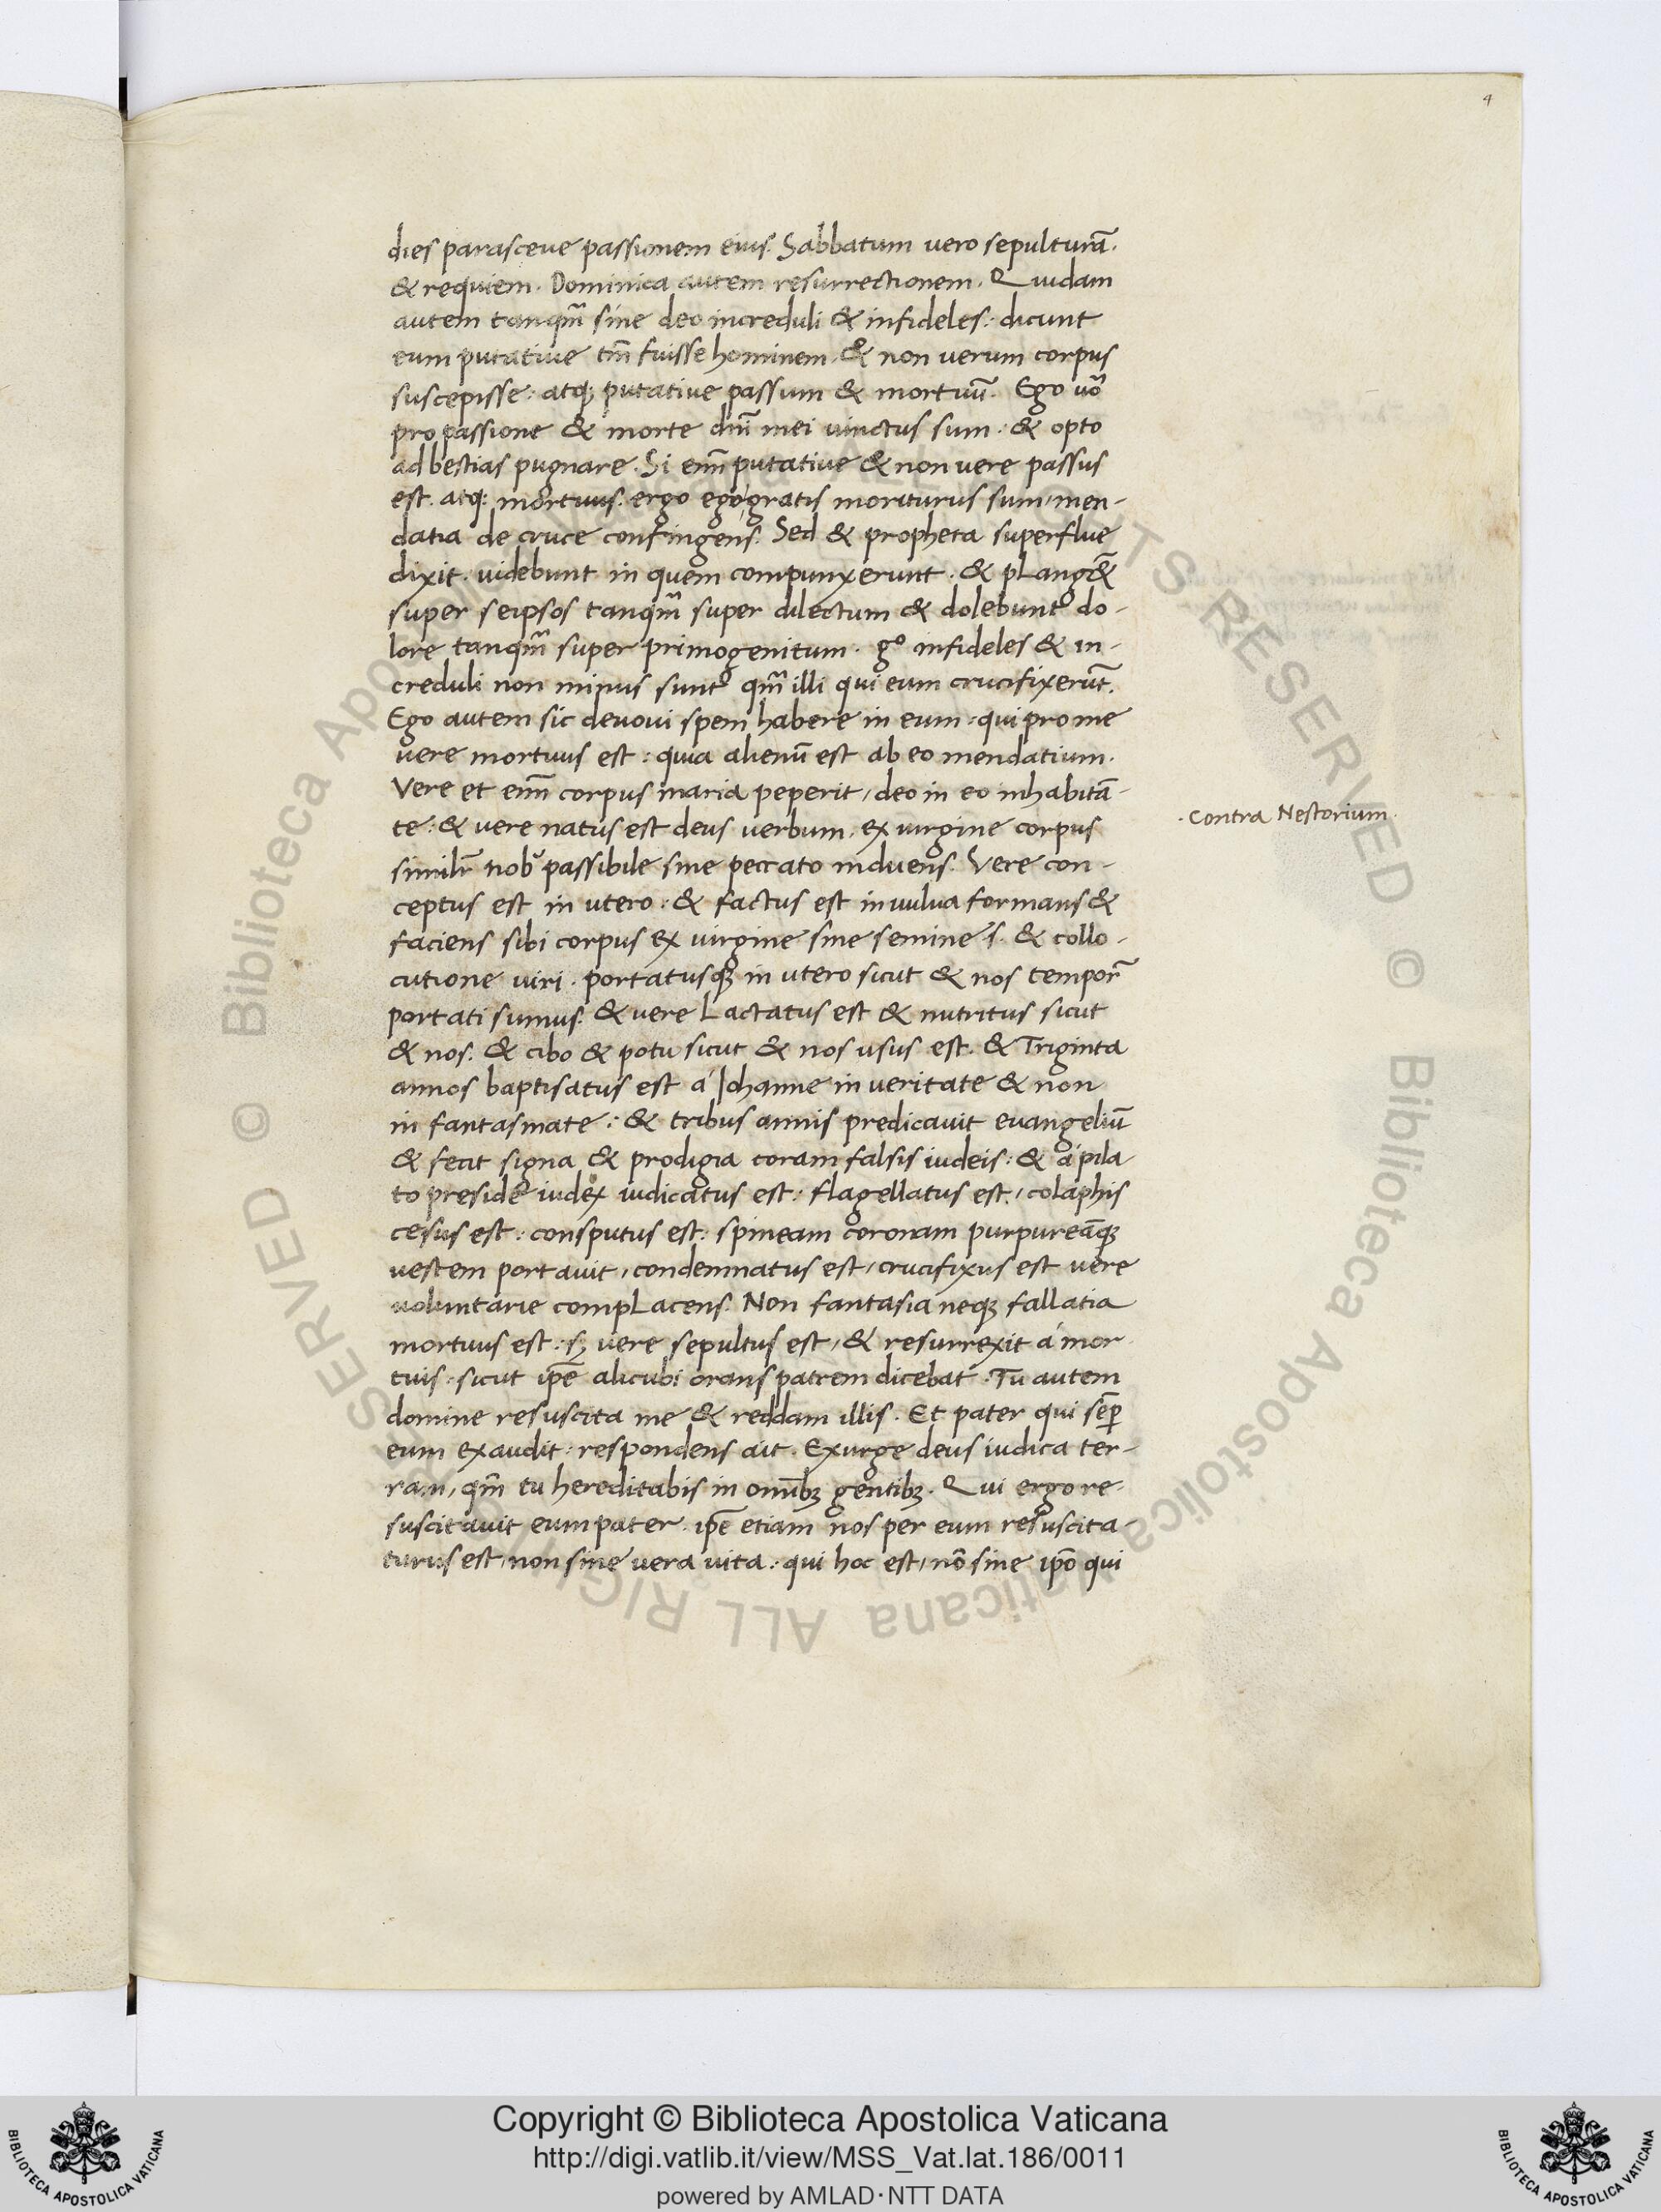 4
dies parasceue passionem eius. Sabbatum uero sepulturā.
& requiem. Dominica autem resurrectionem. Quidam
autem tanqm̄ sine deo increduli & infideles: dicunt
eum putatiue tm̄ fuisse hominem. & non uerum corpus
suscepisse: atq; putatiue passum & mortuū. Ego uo᷑
pro passione & morte dn̄i mei uinctus sum. & opto
ad bestias pugnare. Si enī putatiue & non uere passus
est. atq; mortuus. ergo ego gratis moriturus sum, men-
datia de cruce confingens. Sed & propheta superflue
dixit. uidebunt in quem compunxerunt. & plang&̄
super seipsos tanqm̄ super dilectum & dolebunt do-
lore tanqm̄ super primogenitum. gº infideles & in-
creduli non minus sunt qm̄ illi qui eum crucifixerūt.
Ego autem sic deuoui spem habere in eum: qui pro me
uere mortuus est: quia alienū est ab eo mendatium.
Vere et enī corpus maria peperit, deo in eo inhabitā-
te: & uere natus est deus uerbum. ex uirgine corpus
· Contra Nestorium.
simil̄r nob᷒ passibile sine peccato induens. Vere con-
ceptus est in utero: & factus est in uulua formans &
faciens sibi corpus ex uirgine sine semine .s. & collo-
cutione uiri. portatusq; in utero sicut & nos tempor̄
portati sumus. & uere Lactatus est & nutritus sicut
& nos. & cibo & potu sicut & nos usus est. & Triginta
annos baptisatus est á Johanne in ueritate & non
in fantasmate: & tribus annis predicauit euangeliū
& fecit signa & prodigia coram falsis iudeis: & á pila
to preside iudex iudicatus est: flagellatus est, colaphis
cesus est: consputus est: spineam coronam purpureāq;
uestem portauit, condemnatus est, crucifixus est uere
uoluntarie compLacens. Non fantasia neq; fallatia
mortuus est: s; uere sepultus est, & resurrexit á mor
tuis: sicut ip̄e alicubi orans patrem dicebat. Tu autem
domine resuscita me & reddam illis. Et pater qui semp̄
eum exaudit: respondens ait. Exurge deus iudica ter-
ram, qm̄ tu hereditabis in omnib; gentib;. Qui ergo re-
suscitauit eum pater. ip̄e etiam nos per eum resuscita-
turus est, non sine uera uita: qui hoc est, nō sine ip̄o qui
© Biblioteca Apostolica Vaticana ALL RIGHTS RESERVED
Copyright © Biblioteca Apostolica Vaticana
http://digi.vatlib.it/view/MSS_Vat.lat.186/0011
powered by AMLAD·NTT DATA
BIBLIOTECA APOSTOLICA VATICANA
BIBLIOTECA APOSTOLICA VATICANA